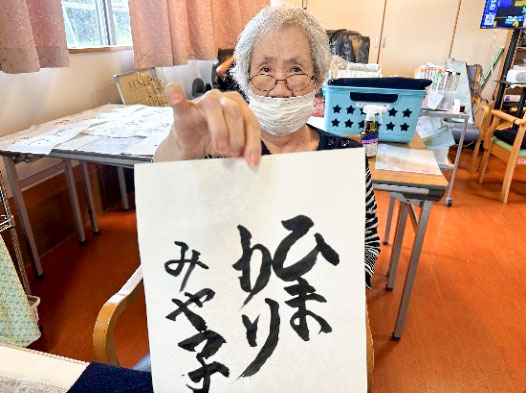 ひま
わり
みや子